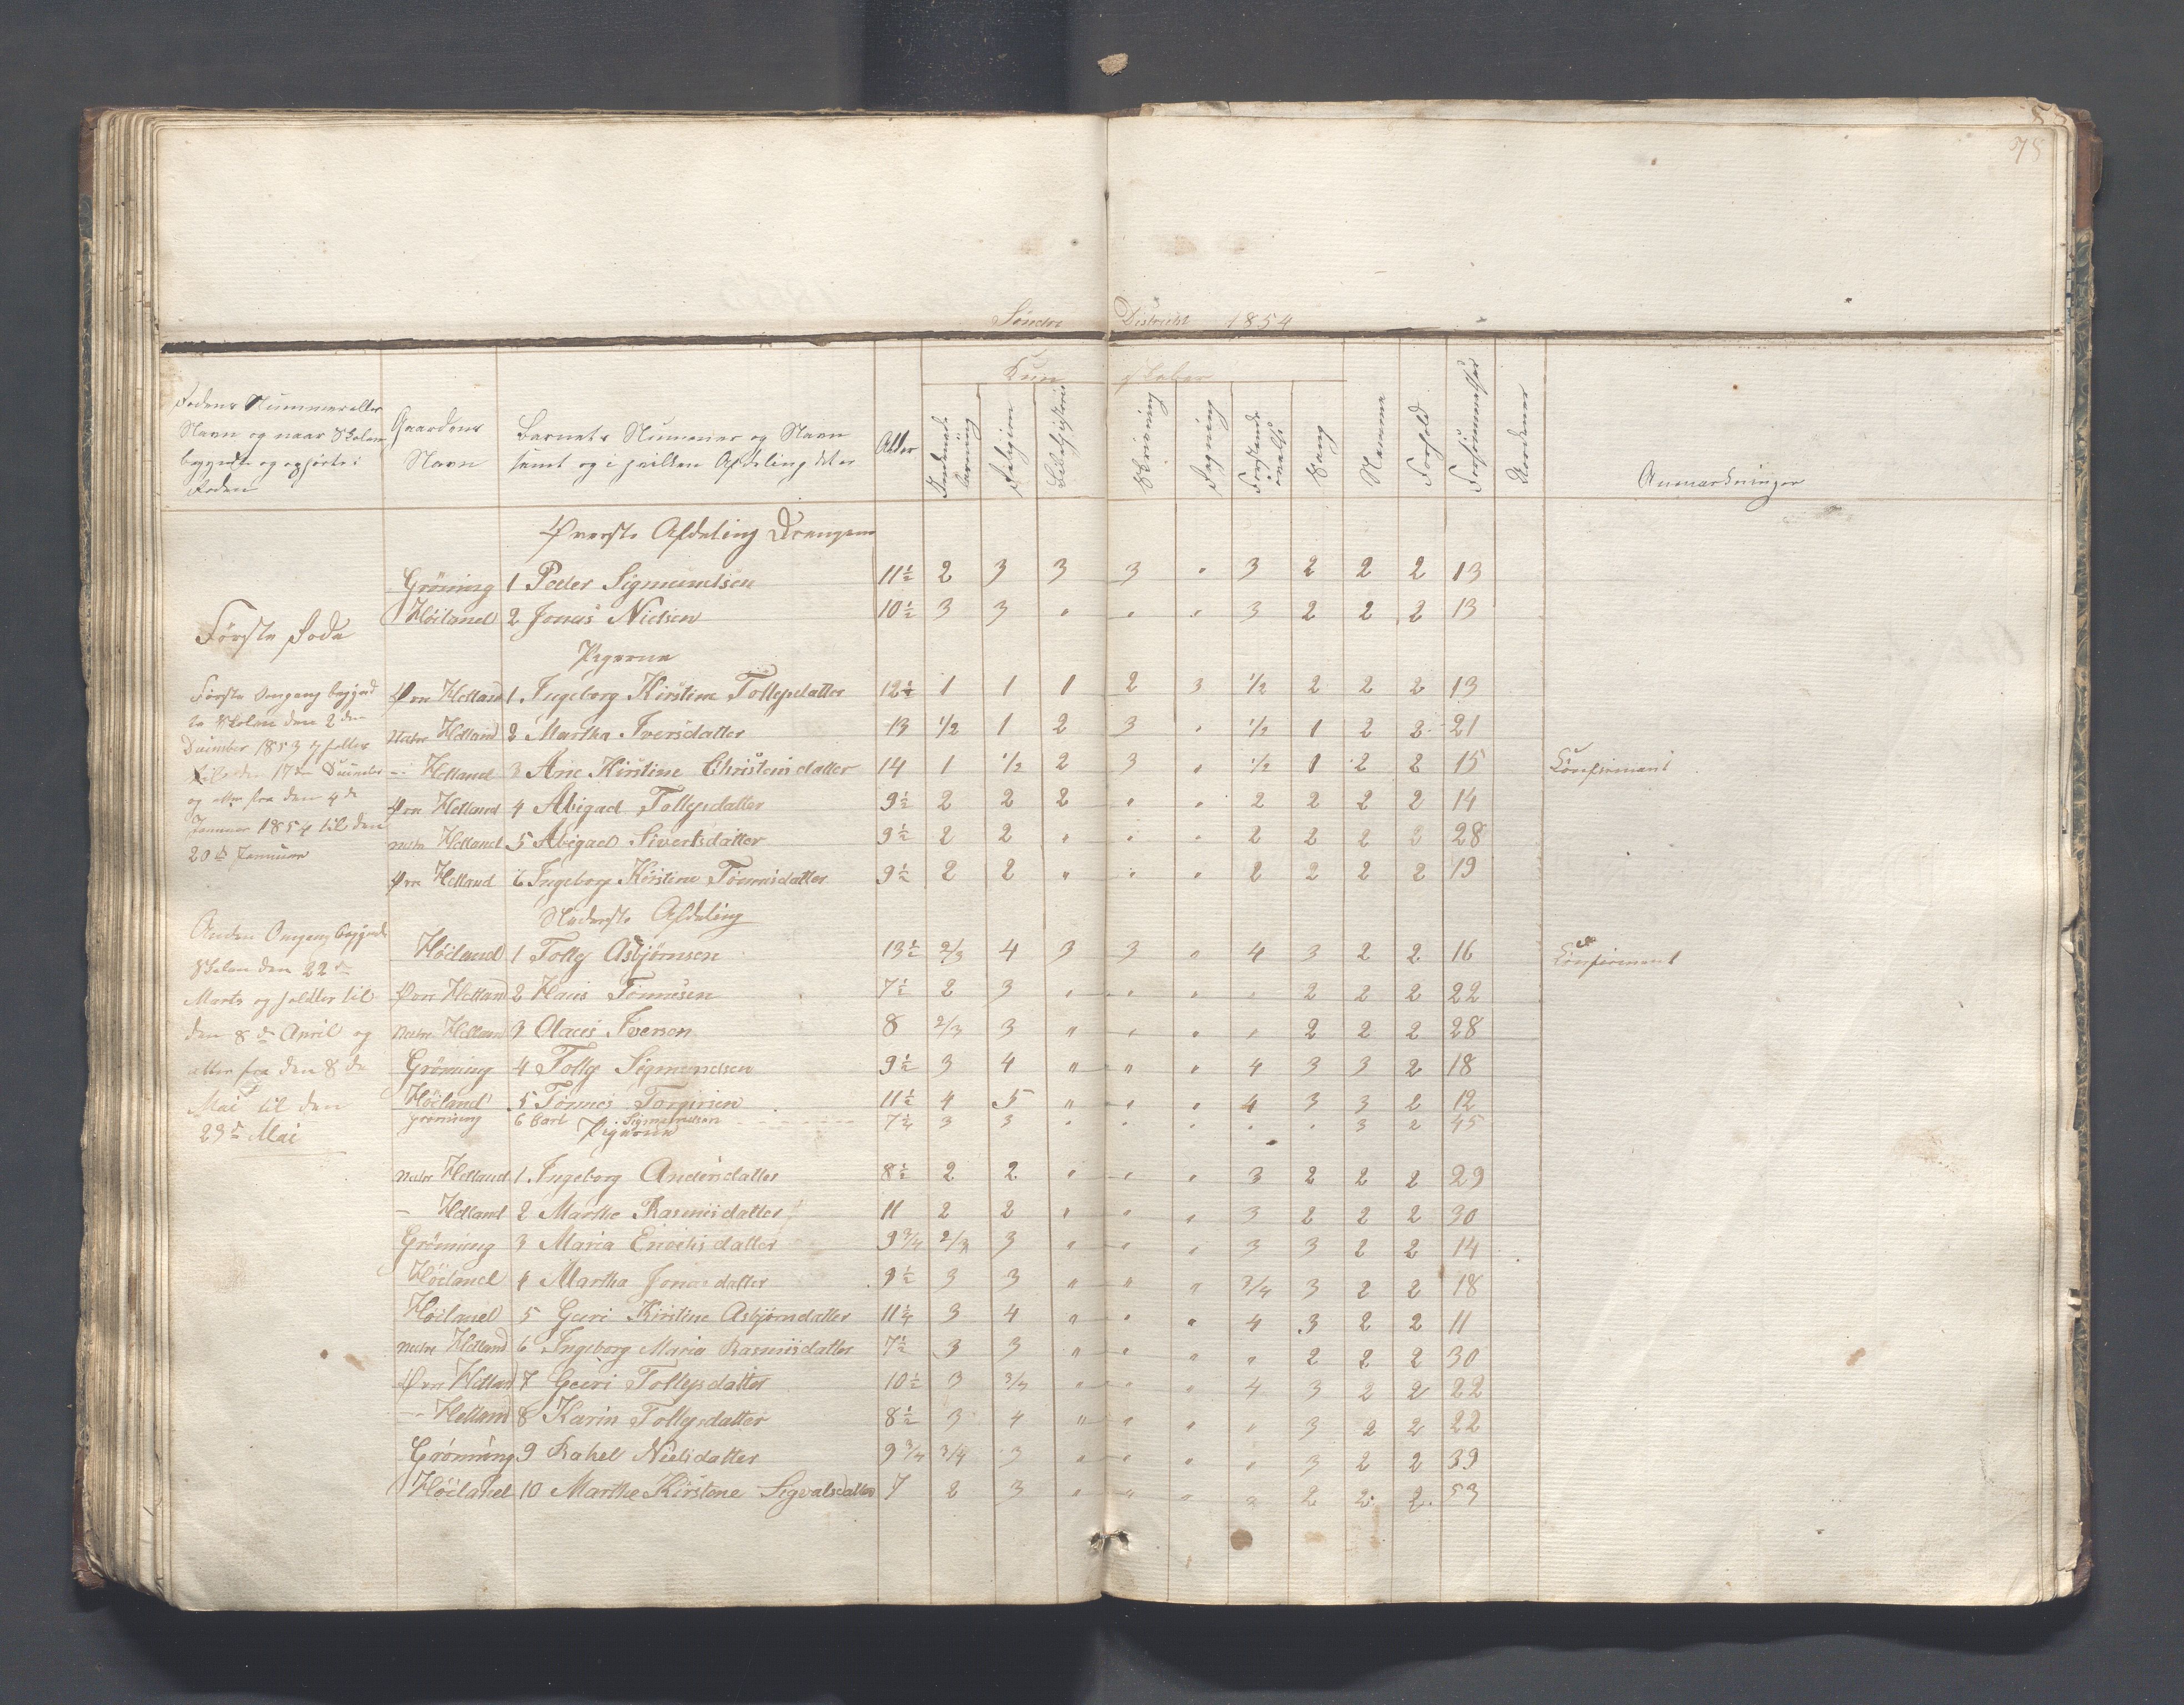 78
Söndre District 1854
Kundskaber
Rodens Nummer eller
Navn og naar Skolen
begyndte og ophörte i
Roden
Gaardens
Navn
Barnets Nummer og Navn
samt og i hvilken Afdeling det er
Alder
Indenads
læsning
Religion
Bibelhistorie
Skrivning
Regning
Forstands
övelse
Sang
Nemme
Forhold
Forsömmelser
Anmærkninger
Överste Afdeling Drengene
Gröning 1 Peder Sigmundsen 11½ 2 3 3 3 " 3 2 2 2 13
Höiland 2 Jonas Nielsen 10½ 3 3 " " " 3 2 2 2 13
Förste Rode
Pigerne
Förste Omgang begynd
te Skolen den 2den
December 1853 holdtes
til den 17de December
og atter fra den 4de
Januar 1854 til den
20de Januar
Övre Helland 1 Ingeborg Kirstine Tollegsdatter 12¼ 1 1 1 2 3 1/2 2 2 2 13
Nedre Helland 2 Martha Iversdatter 13 1/2 1 2 3 " 1/2 1 2 2 21
- Helland 3 Ane Kirstine Christensdatter 14 1 1/2 2 3 " 1/2 1 2 2 15 Confirmant
Övre Helland 4 Abigael Tollegsdatter 9½ 2 2 2 " " 2 2 2 2 14
Nedre Helland 5 Abigael Sivertsdatter 9½ 2 2 " " " 2 2 2 2 28
Övre Helland 6 Ingeborg Kirstine Tönnesdatter 9½ 2 2 " " " 2 2 2 2 19
Nederste Afdeling
Anden Omgang begyndte
Skolen den 22de
Marts og holdtes til
den 8de April og
atter fra den 8de
Mai til den
23de Mai
Höiland 1 Tolleg Asbjörnsen 13½ 2/3 4 3 3 " 4 3 2 2 16 Confirmant
Övre Helland 2 Hans Tönnesen 7½ 2 3 " " " " 2 2 2 22
Nedre Helland 3 Olaus Iversen 8 2/3 3 " " " " 2 2 2 28
Gröning 4 Tolleg Sigmundsen 9½ 3 4 " " " 4 3 3 2 18
Höiland 5 Tönnes Torgersen 11½ 4 5 " " " 4 3 3 2 12
Gröning 6 Carl Sigmundsen 7½ 3 3 " " " " " 3 2 45
Pigerne
Nedre Helland 1 Ingeborg Andersdatter 8½ 2 2 " " " 3 2 2 2 29
- Helland 2 Marthe Rasmusdatter 11 2 2 " " " 3 2 2 2 30
Gröning 3 Maria Enochsdatter 9 3/4 2/3 3 " " " 3 3 2 2 14
Höiland 4 Martha Jonasdatter 9½ 3 3 " " " 3/4 3 2 2 18
Höiland 5 Guri Kirstine Asbjörnsdatter 11¼ 3 4 " " " 4 3 2 2 11
Nedre Helland 6 Ingeborg Maria Rasmusdatter 7½ 3 3 " " " " 2 2 2 30
Övre Helland 7 Guri Tollegsdatter 10½ 3 3/4 " " " 4 3 2 2 22
- Helland 8 Karin Tollegsdatter 8½ 3 4 " " " " 3 2 2 22
Gröning 9 Rakel Nielsdatter 9 3/4 3/4 3 " " " " 3 2 2 39
Höiland 10 Marthe Kirstene Sigvalsdatter 7 2 3 " " " " 2 2 2 53